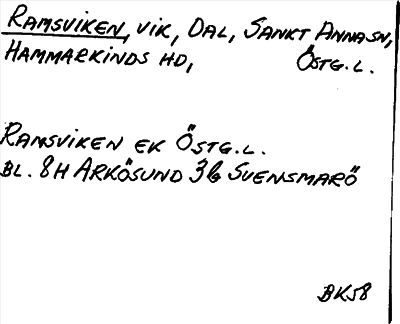 RAMSVIKEN, VIK, DAL, SANKT ANNA SN,
HAMMARKINDS HD, ÖSTG.L.
RAMSVIKEN EK ÖSTG.L.
BL. 8H ARKÖSUND 3b SVENSMARÖ
BK58